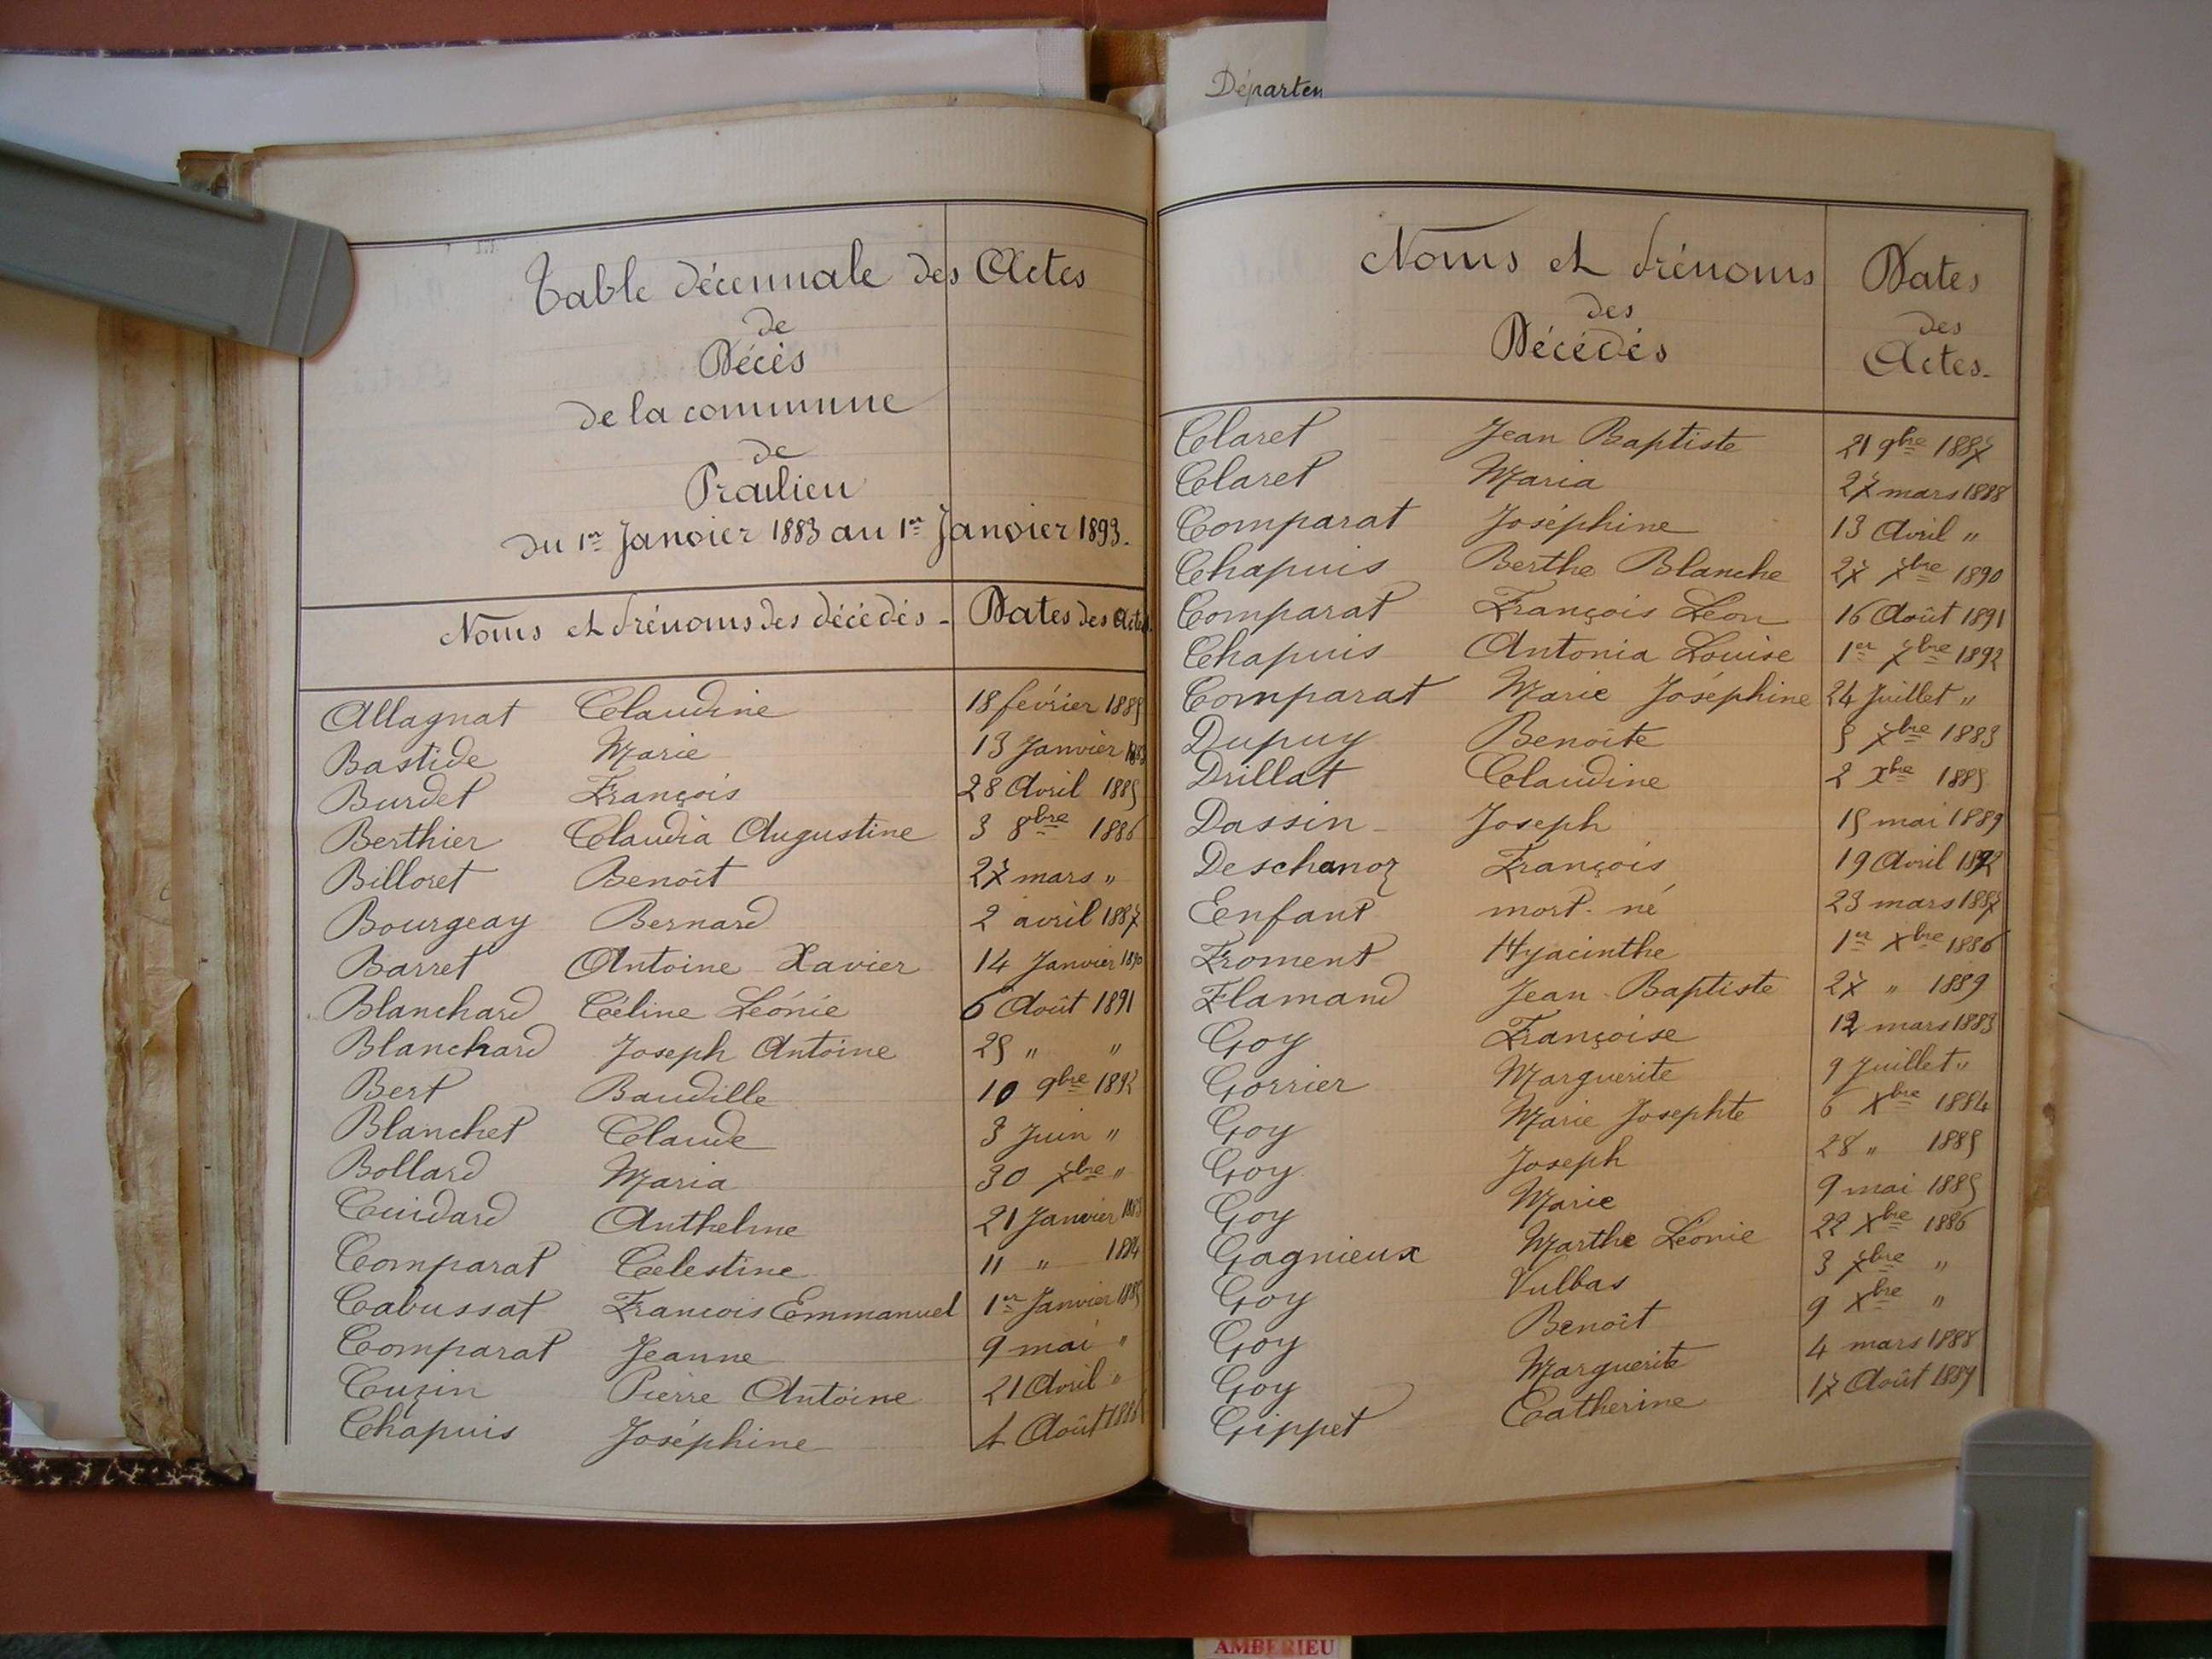 Départem
Table décennale des Actes
de
Décès
de la commune
de
Proulieu
du 1er Janvier 1883 au 1er Janvier 1893.
Noms et Prénoms des décédés - Dates des Actes.
Allagnat Claudine 18 février 1885
Bastide Marie 13 Janvier 1883
Burdet François 28 Avril 1885
Berthier Claudia Augustine 3 8bre 1886
Billoret Benoît 27 mars "
Bourgeay Bernard 2 avril 1887
Barret Antoine Xavier 14 Janvier 1890
Blanchard Céline Léonie 6 Août 1891
Blanchard Joseph Antoine 25 " "
Bert Baudille 10 9bre 1892
Blanchet Claude 3 Juin "
Bollard Maria 30 7bre "
Cuidard Anthelme 21 Janvier 1883
Comparat Célestine 11 " 1884
Cabussat Francois Emmanuel 1er Janvier 1885
Comparat Jeanne 9 mai "
Cuzin Pierre Antoine 21 Avril "
Chapuis Joséphine 4 Août 1886
Noms et Prénoms Dates
des des
Décédés Actes.
Claret Jean Baptiste 21 9bre 1887
Claret Maria 27 mars 1888
Comparat Joséphine 13 Avril "
Chapuis Berthe Blanche 27 7bre 1890
Comparat François Léon 16 Août 1891
Chapuis Antonia Louise 1er 7bre 1892
Comparat Marie Joséphine 24 Juillet "
Dupuy Benoîte 5 7bre 1883
Drillat Claudine 2 Xbre 1885
Dassin - Joseph 15 mai 1889
Deschanoz François 19 Avril 1892
Eenfant mort-né 23 mars 1887
Froment Hyacinthe 1er Xbre 1886
Flamand Jean-Baptiste 27 " 1889
Goy Françoise 12 mars 1883
Gorrier Marguerite 9 Juillet "
Goy Marie Josephte 6 Xbre 1884
Goy Joseph 28 " 1885
Goy Marie 9 mai 1885
Gagnieux Marthe Léonie 22 Xbre 1886
Goy Vulbas 3 7bre "
Goy Benoît 9 Xbre "
Goy Marguerite 4 mars 1888
Gippet Catherine 17 Août 1889
AMBERIEU